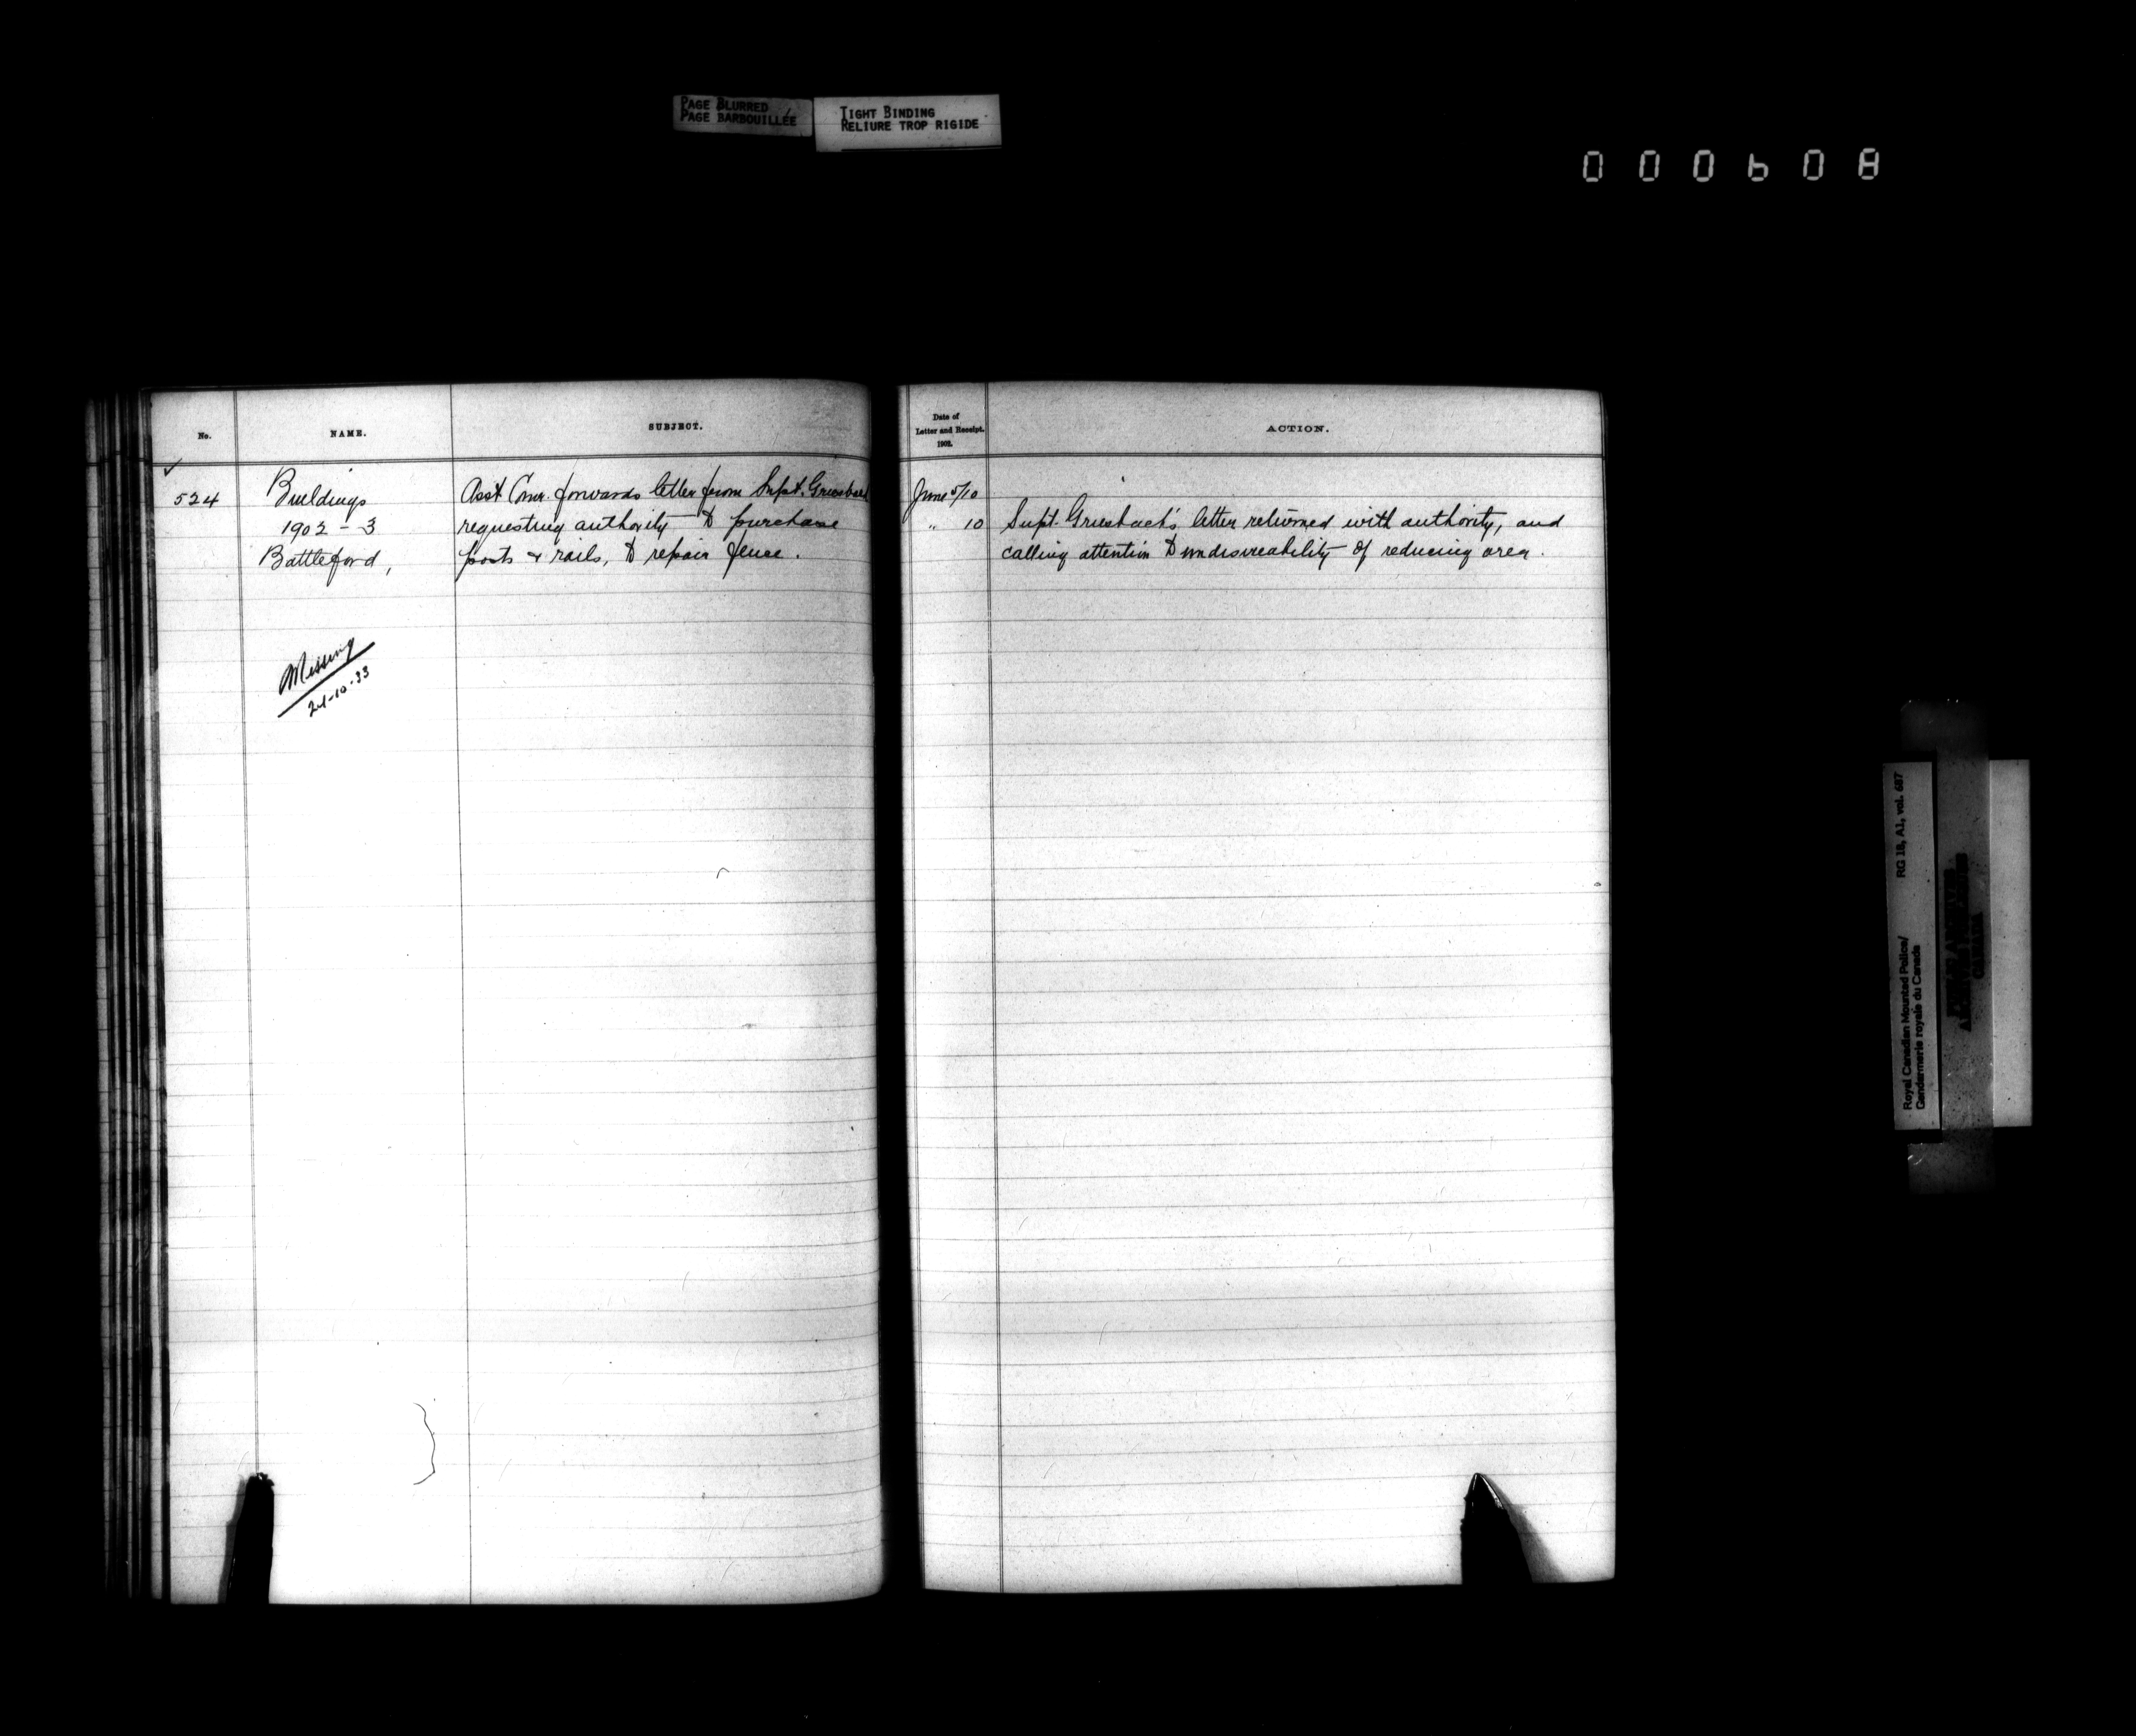 PAGE BLURRED
PAGE BARBOUILLÉE
TIGHT BINDING
RELIURE TROP RIGIDE
000608
No.
NAME.
SUBJECT.
✓
524
Buildings
1902-3
Battleford,
Asst Comr. forwards letter from Supt. Griesbach
requesting authority to purchase
posts & rails, to repair fence.
Missing
24-10-33
Date of
Letter and Receipt.
1902.
ACTION.
June 5/10
" 10
Supt. Griesbach's letter returned with authority, and
calling attention to undesireability of reducing area.
Royal Canadian Mounted Police/
Gendarmerie royale du Canada
RG 18, A1, vol. 687
CANADA